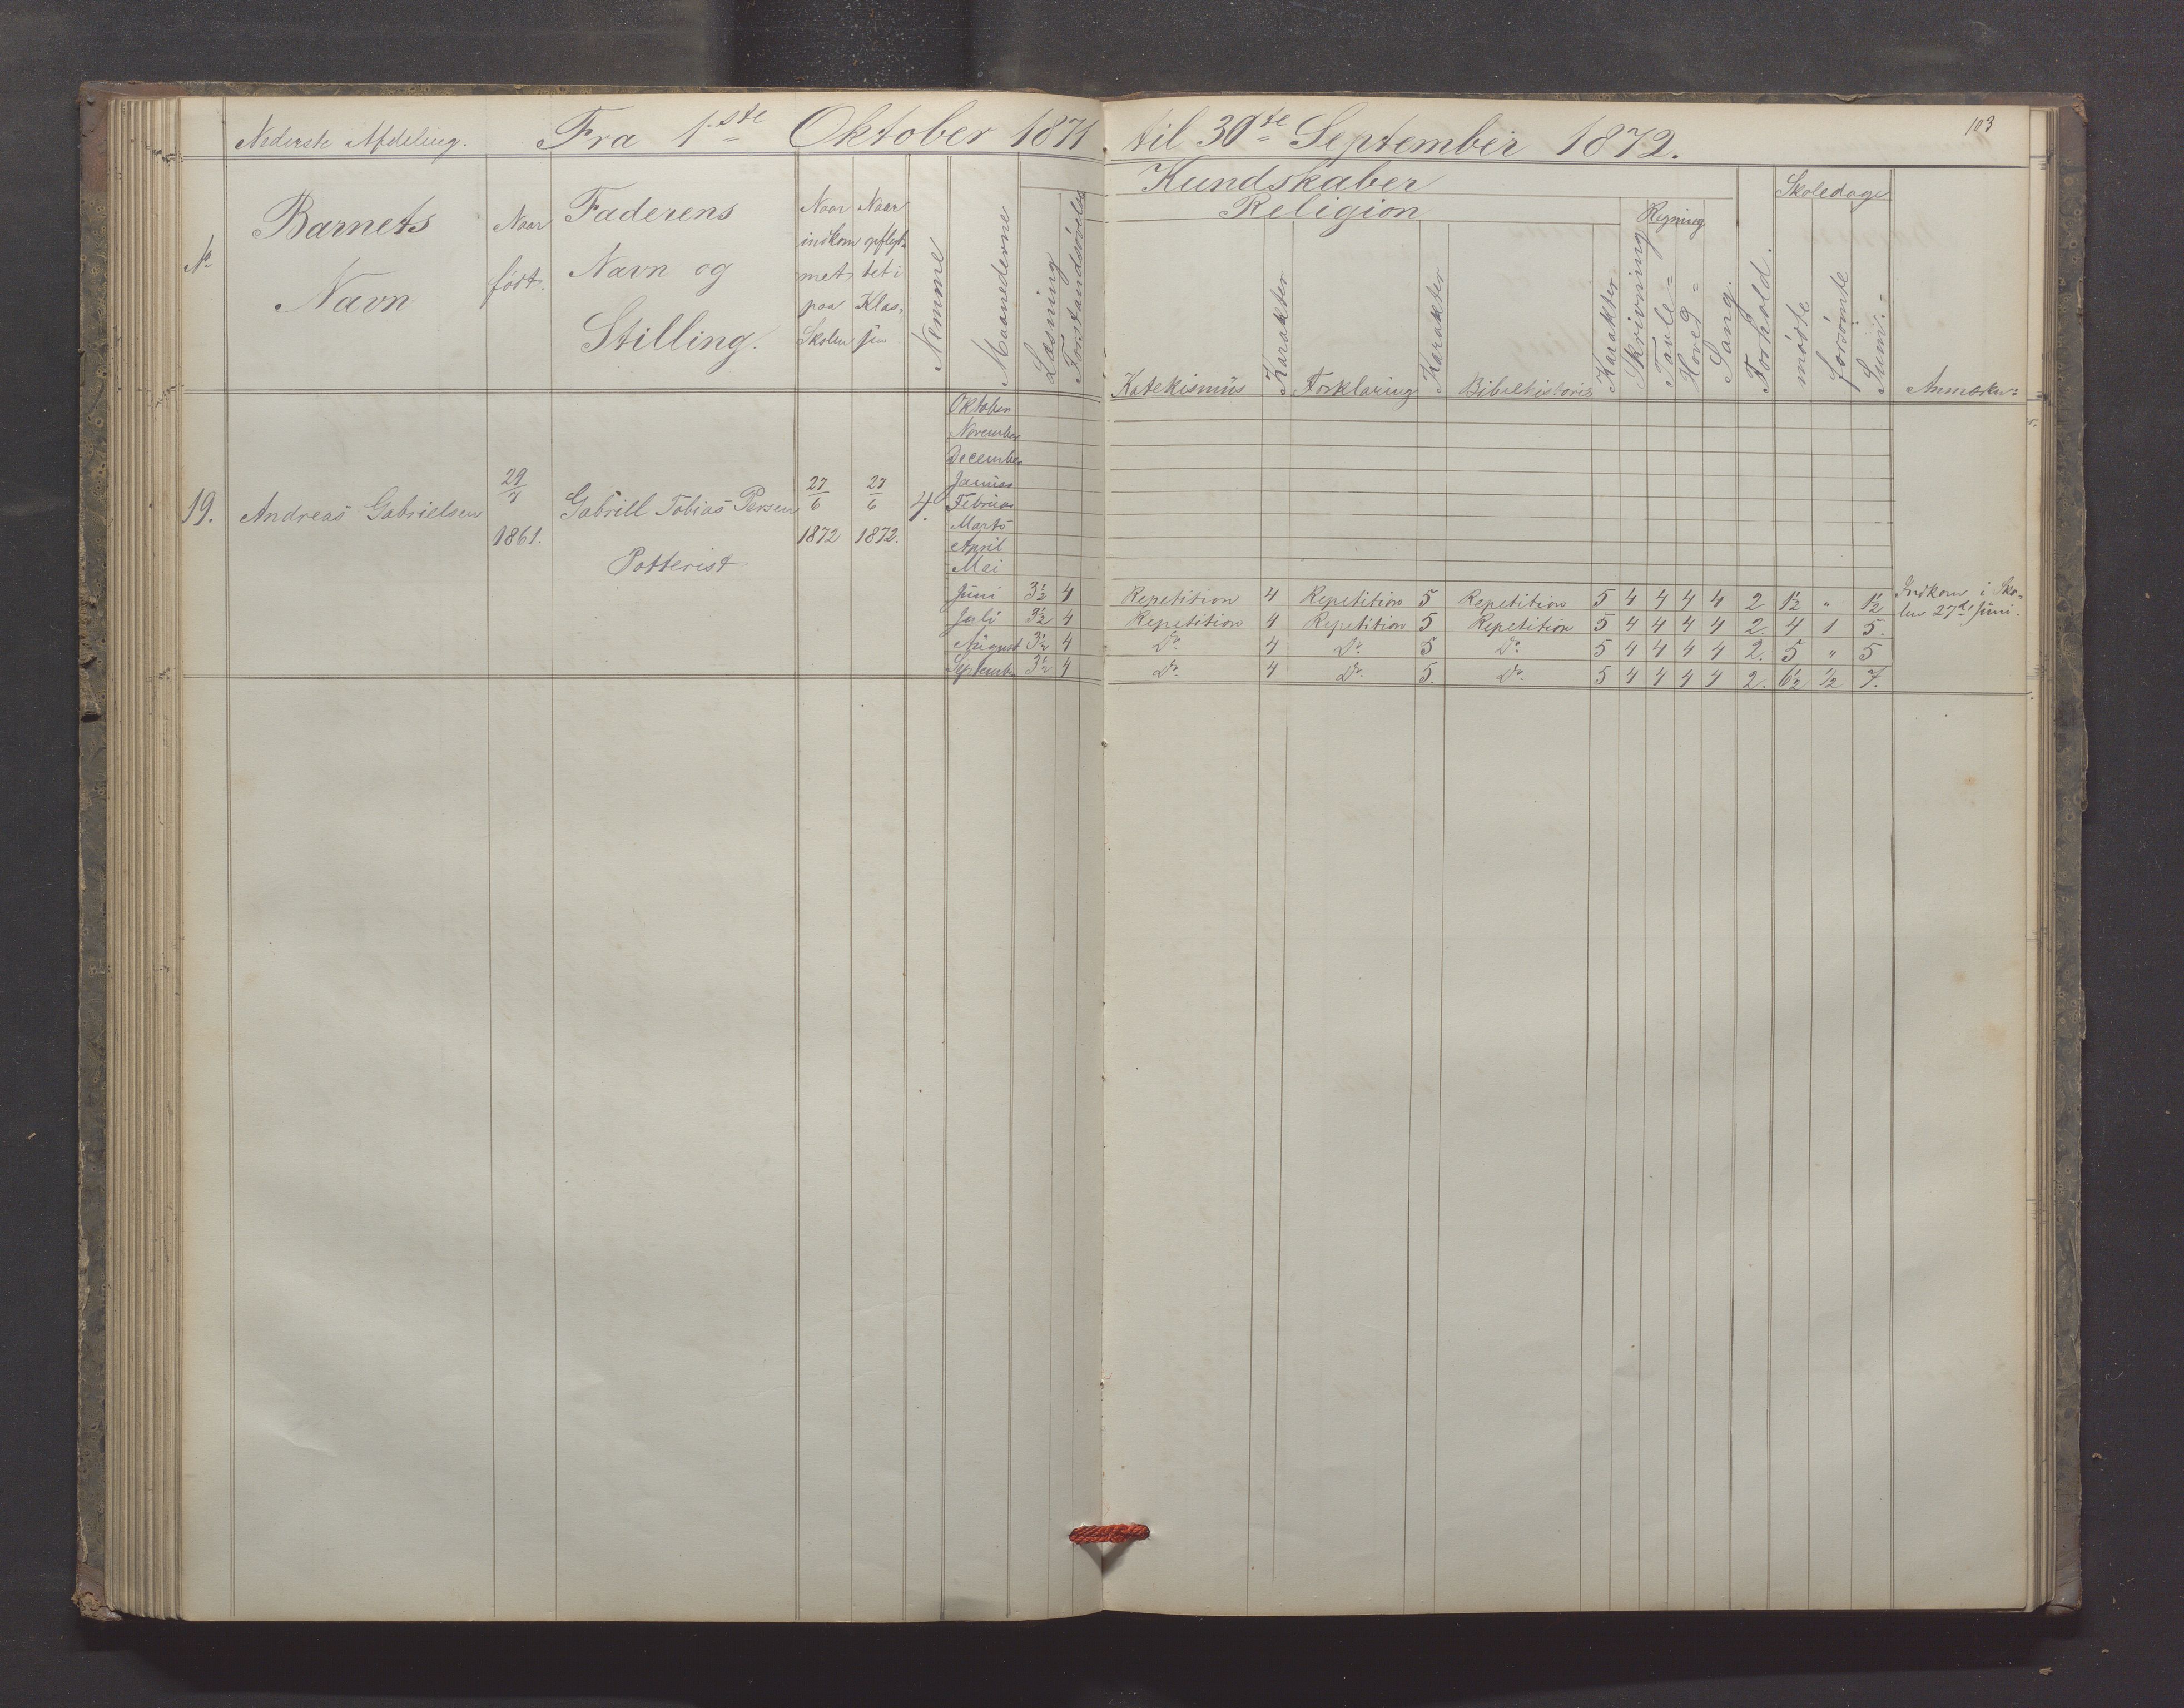 103
Nederste Afdeling. Fra 1ste Oktober 1871 til 30te September 1872.
Kundskaber
Religion
Skoledage
Regning
No
Barnets
Navn
Naar
født.
Faderens
Navn og
Stilling.
Naar
indkom
met
paa
Skolen
Naar
opflyt-
tet i
Klas-
sen
Nemme
Maanederne
Læsning
Forstandsøvelse
Katekismus
Karakter
Forklaring
Karakter
Bibelhistorie
Karakter
Skrivning
Tavle =
Hoved =
Sang.
Forhold.
mødte
forsømte
Sum.=
Anmærkn:
Oktober
November
December
Januar
Februar
Marts
April
Mai
19. Andreas Gabrielsen 29/7 1861. Gabriel Tobias Persen 27/6 1872 27/6 1872. 4.
Potterist
Juni 3½ 4 Repetition 4 Repetition 5 Repetition 5 4 4 4 4 2 1½ " 1½ Indkom i Sko-
Juli 3½ 4 Repetition 4 Repetition 5 Repetition 5 4 4 4 4 2. 4 1 5. len 27de Juni.
August 3½ 4 Do. 4 Do. 5 Do. 5 4 4 4 4 2. 5 " 5
September 3½ 4 Do. 4 Do. 5. Do. 5 4 4 4 4 2. 6½ ½ 7.